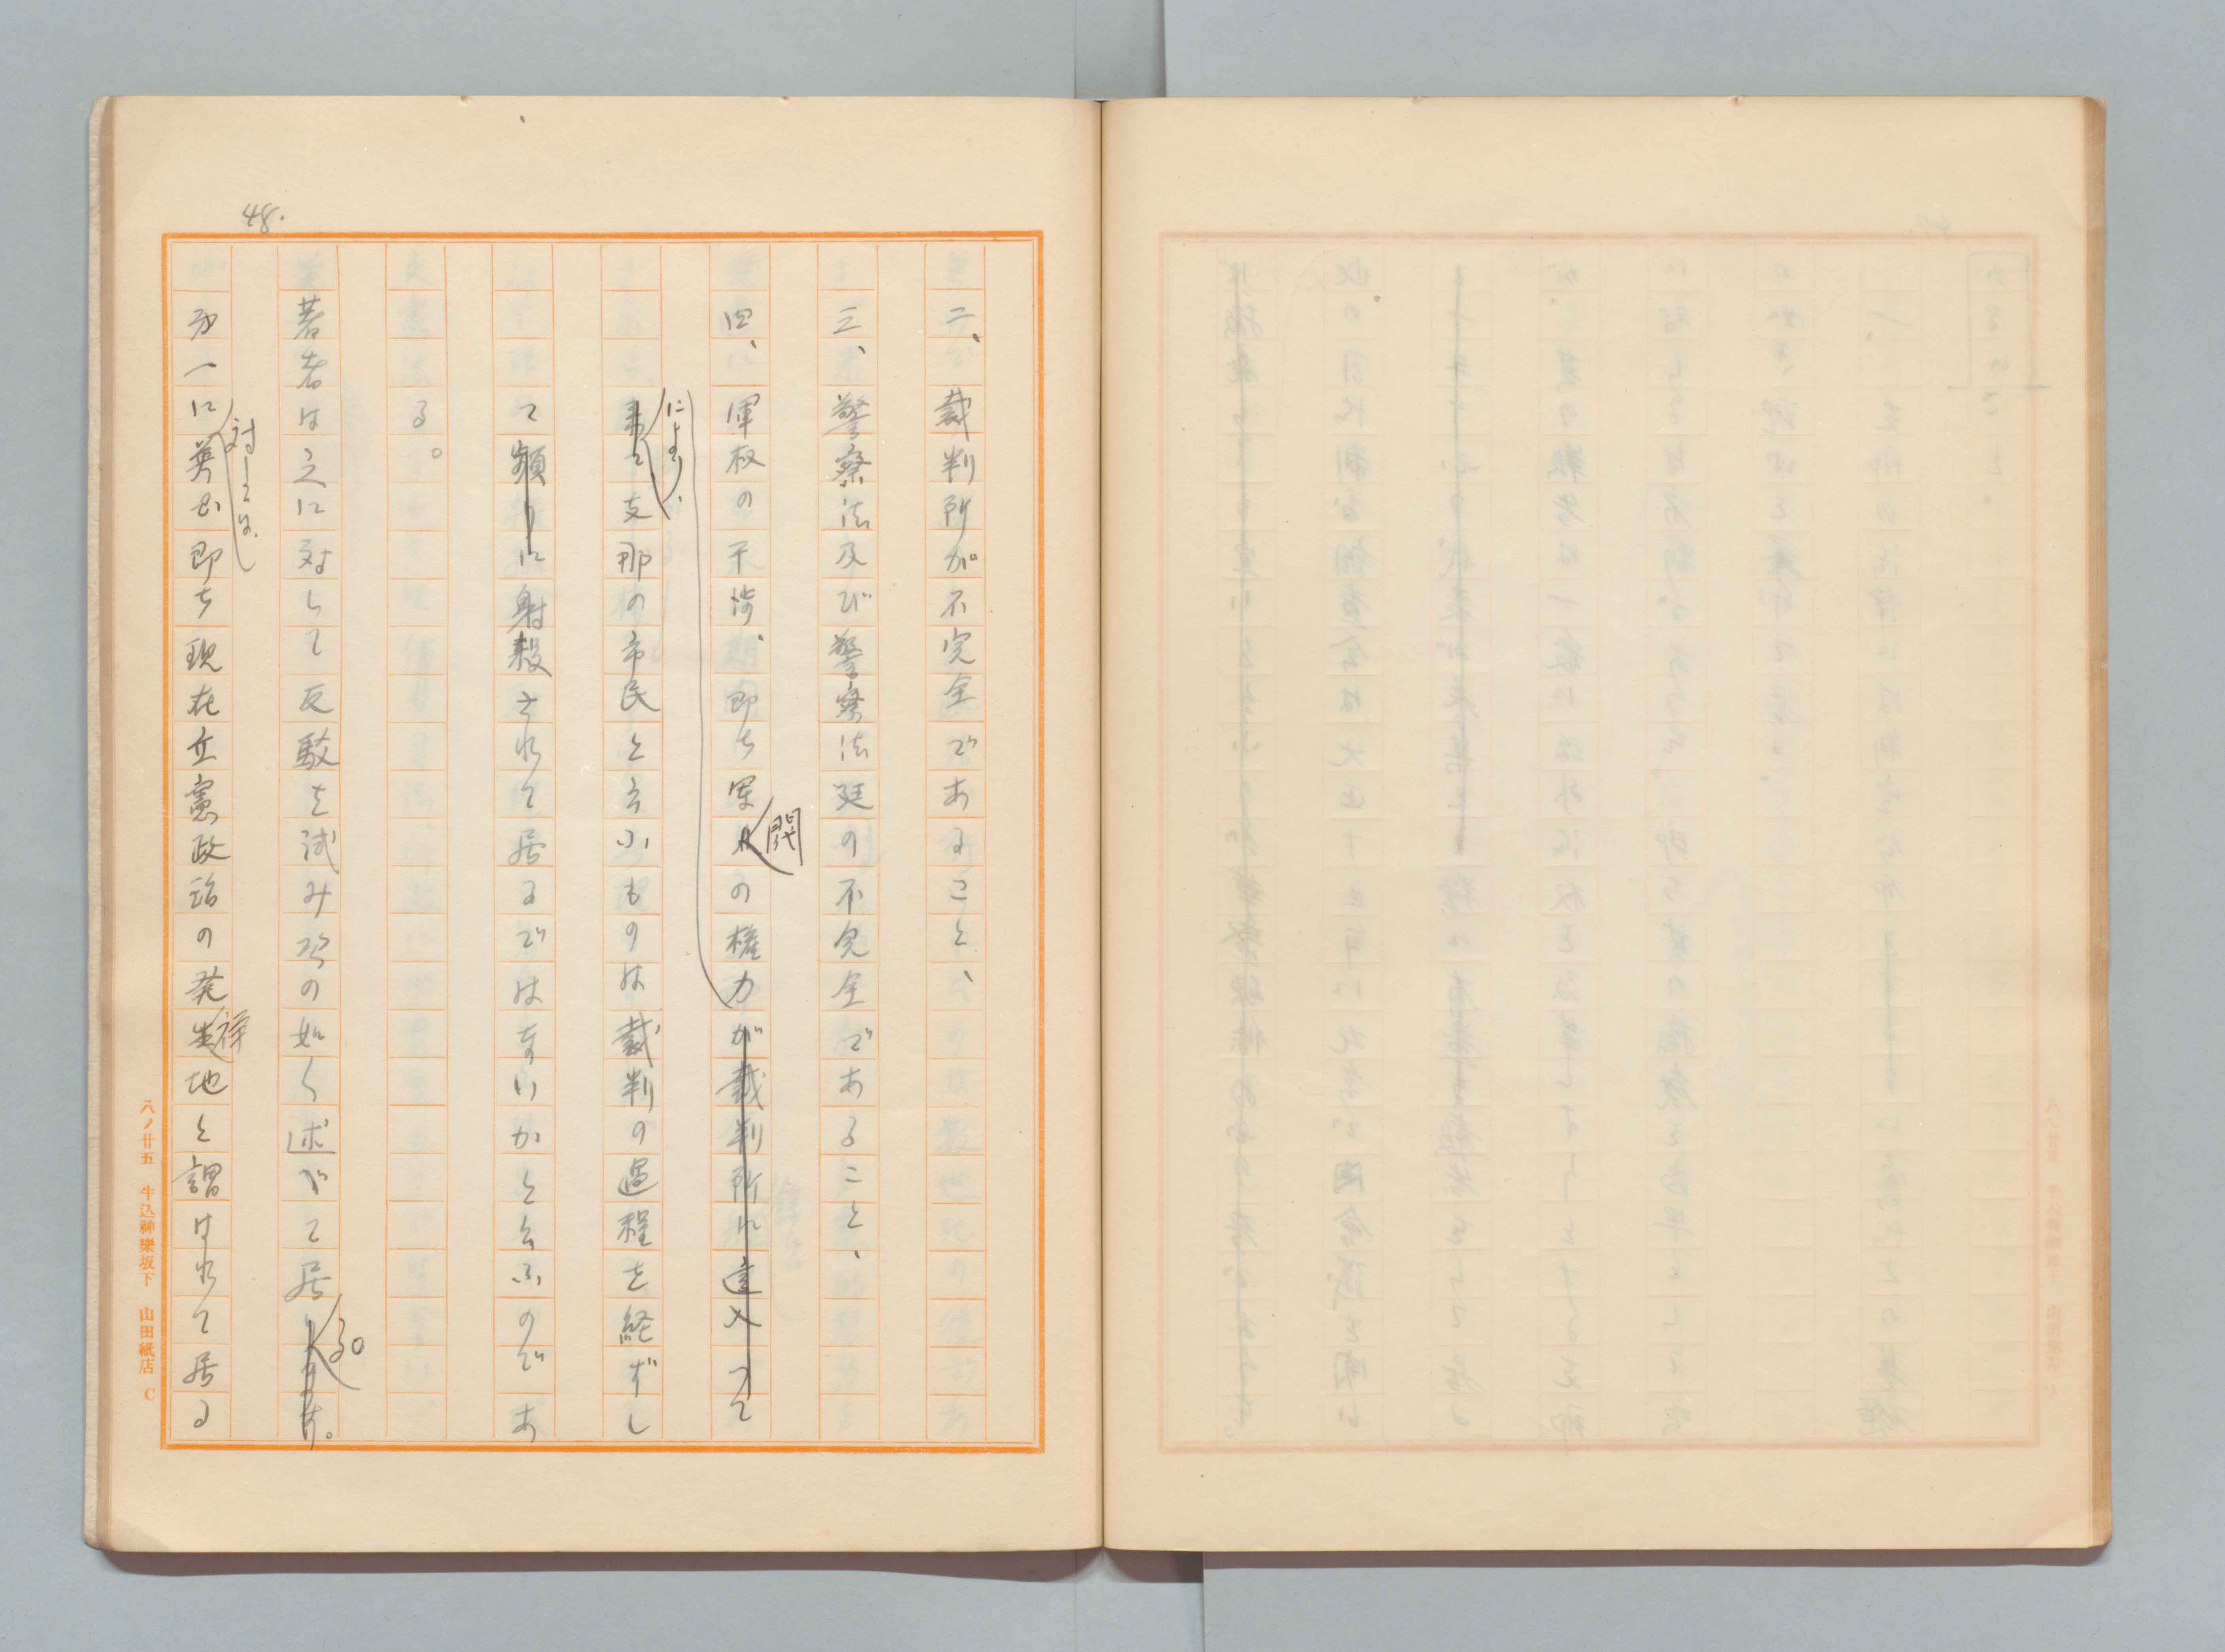 48.
二、裁判所が不完全であること、
三、警察法及び警察法廷の不完全であること、
四、軍权の干渉、即ち軍人閥の権力が裁判所に這入つて
により、
来て支那の市民と云ふものは裁判の過程を経ずし
て頻りに射殺されて居るではないかと云ふのであ
る。
著者は之に対して反駁を試み次の如く述べて居ります。
る。
対しては、
第一に英国即ち現在立憲政治の発生地と謂はれて居る
祥
八ノ廿五 牛込神樂坂下 山田紙店 C